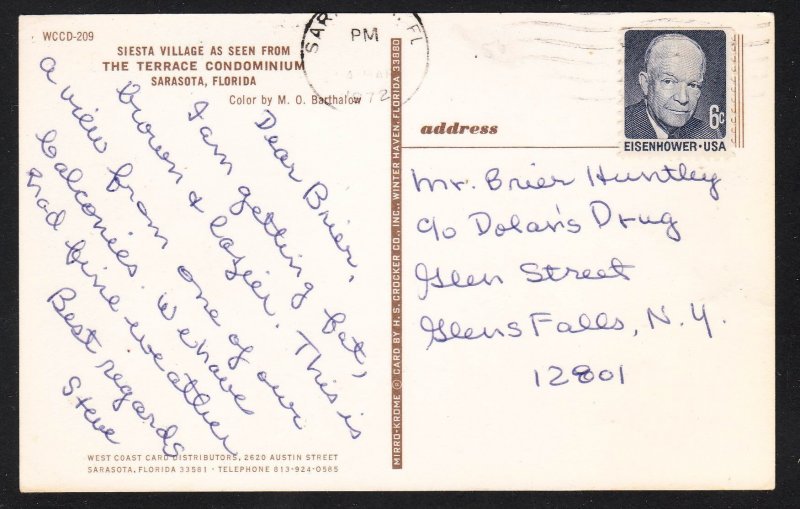 WCCD-209
SIESTA VILLAGE AS SEEN FROM
THE TERRACE CONDOMINIUM
SARASOTA, FLORIDA
Color by M. O. Barthalow
Dear Brier,
I am getting fat,
brown & lazier. This is
a view from one of our
balconies. We have
had fine weather
Best regards
Steve
WEST COAST CARD DISTRIBUTORS, 2620 AUSTIN STREET
SARASOTA, FLORIDA 33581 · TELEPHONE 813-924-0585
MIRRO-KROME © CARD BY H. S. CROCKER CO., INC., WINTER HAVEN, FLORIDA 33880
FL
PM
1972
6c
EISENHOWER·USA
address
Mr. Brier Huntley
c/o Dolan's Drug
Glen Street
Glens Falls, N.Y.
12801